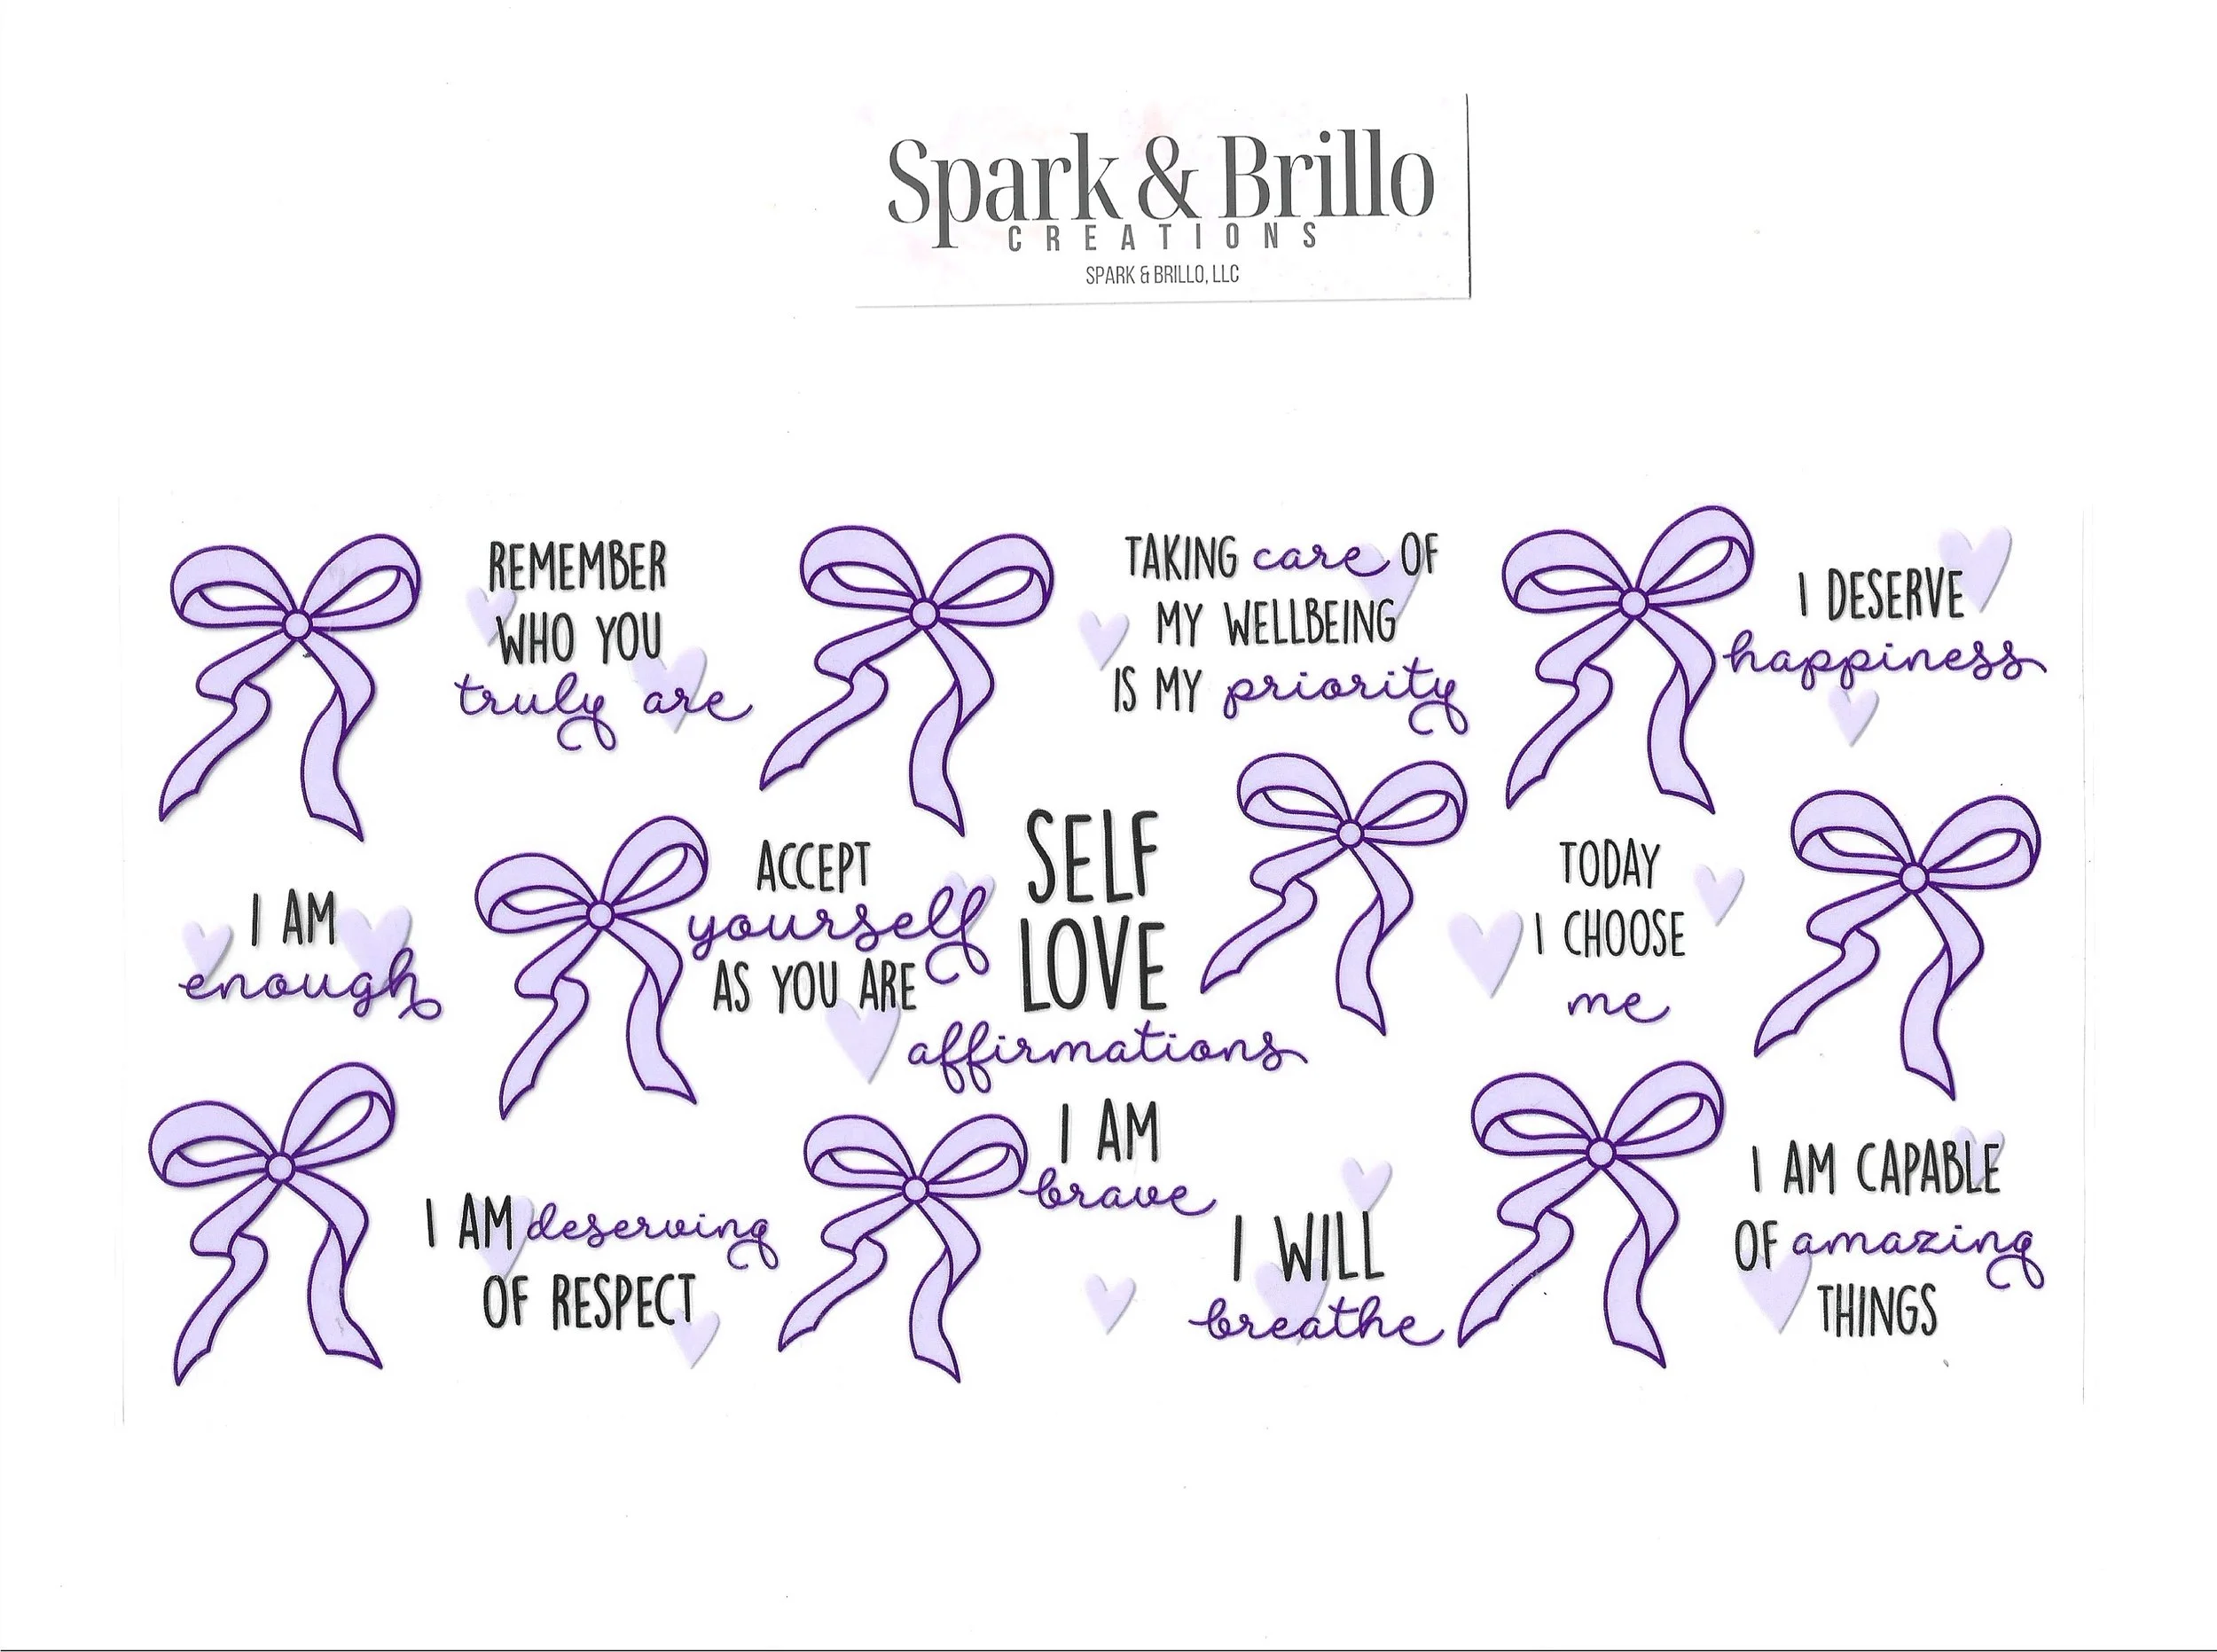 Spark & Brillo
CREATIONS
SPARK & BRILLO, LLC
REMEMBER
WHO YOU
truly are
TAKING care OF
MY WELLBEING
IS MY priority
I DESERVE
happiness
I AM
enough
ACCEPT
yourself
AS YOU ARE
SELF
LOVE
affirmations
TODAY
I CHOOSE
me
I AM deserving
OF RESPECT
I AM
brave
I WILL
breathe
I AM CAPABLE
OF amazing
THINGS